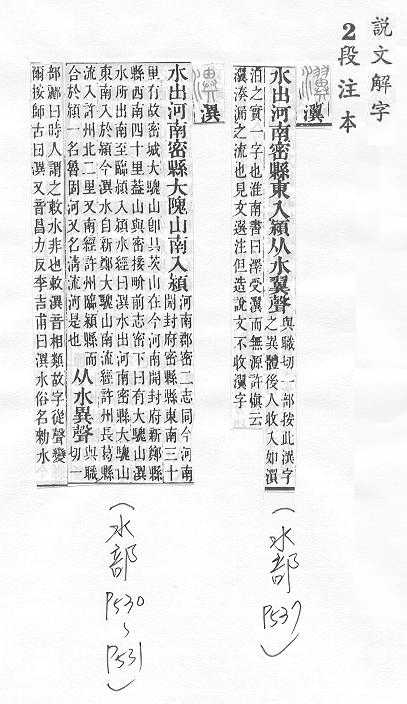 說文解字
2段注本
瀷
瀷
水出河南密縣東入潁从水翼聲
與職切一部按此潩字
之異體後人收入如
之實一字也淮南書曰澤受瀷而無源許愼云
瀷湊漏之流也見文選注但造說文不收瀷字
(水部P537)
潩
潩
水出河南密縣大隗山南入潁
河南郡密二志同今河南
開封府密縣縣東南三十
里有故密城大騩山卽具茨山在今河南開封府新鄭縣
縣西南四十里葢山與密接畍前志密下曰有大騩山潩
水所出南至臨潁入潁水經曰潩水出河南密縣大騩山
東南入於潁今潩水自新鄭大騩山南流經許州長葛縣
流入許州北二里又南經許州臨潁縣而
合於潁一名魯固河又名淸流河是也
从水異聲
與職
切一
部酈曰時人謂之敕水非也敕潩音相類故字從聲變
爾按師古曰潩又音昌力反李吉甫曰潩水俗名勑水
(水部P530~P531)